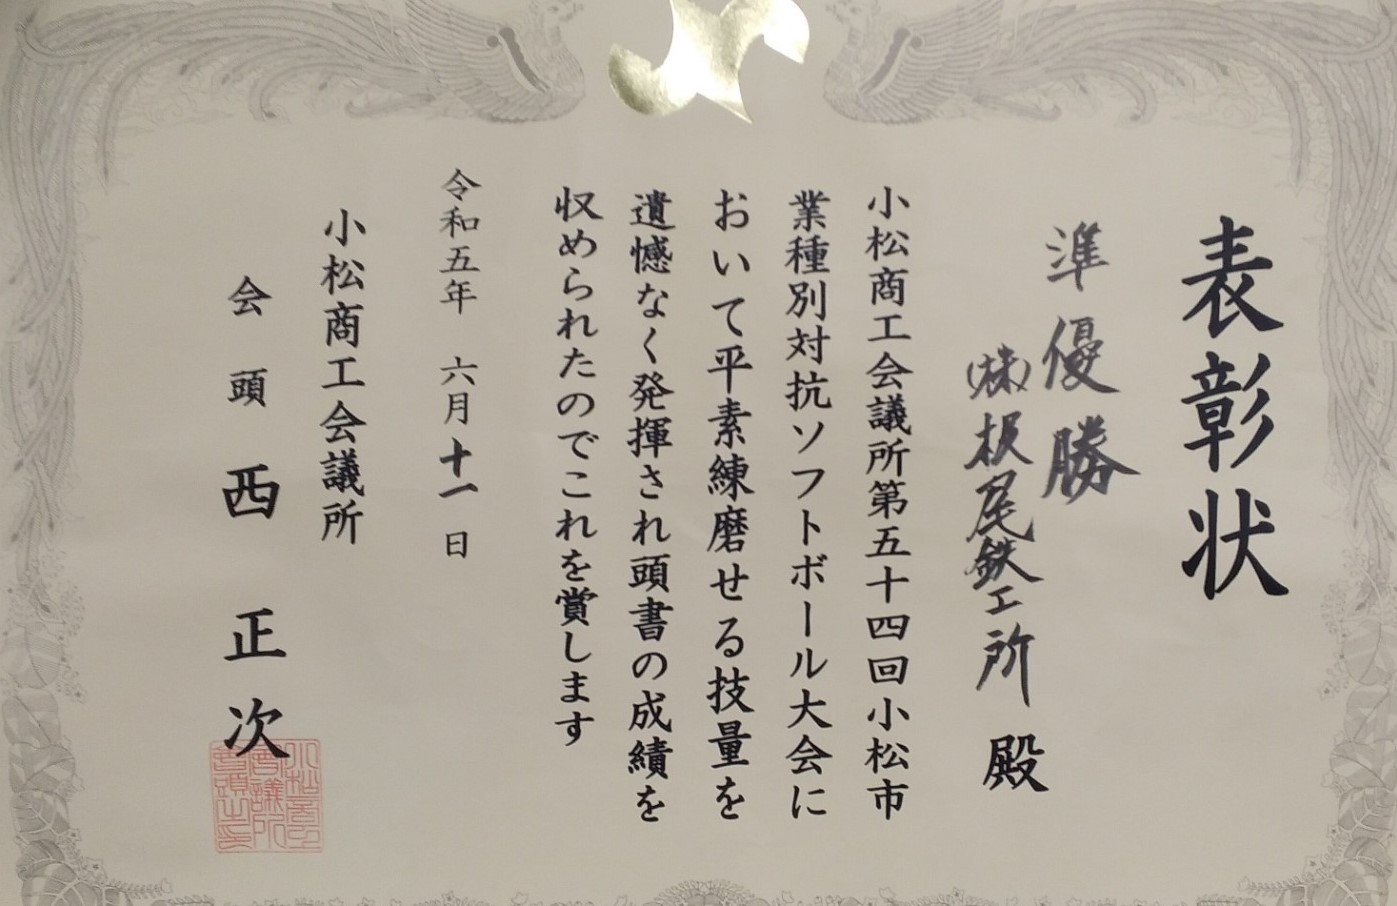 表彰状
準優勝
㈱板尾鉄工所 殿
小松商工会議所第五十四回小松市
業種別対抗ソフトボール大会に
おいて平素練磨せる技量を
遺憾なく発揮され頭書の成績を
収められたのでこれを賞します
令和五年 六月十一日
小松商工会議所
会頭 西正次